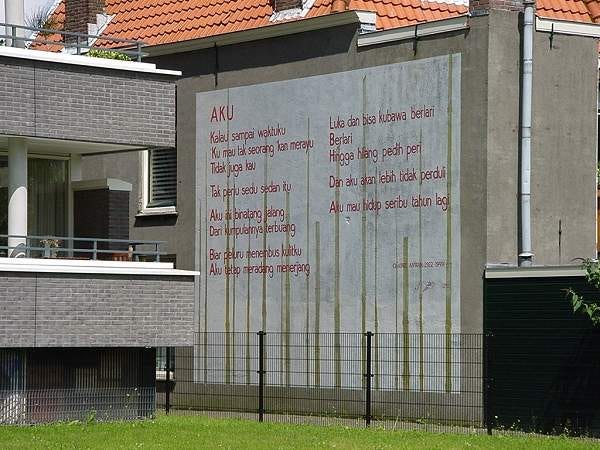 AKU
Kalau sampai waktuku
'Ku mau tak seorang 'kan merayu
Tidak juga kau
Tak perlu sedu sedan itu
Aku ini binatang jalang
Dari kumpulannya terbuang
Biar peluru menembus kulitku
Aku tetap meradang menerjang
Luka dan bisa kubawa berlari
Berlari
Hingga hilang pedih peri
Dan aku akan lebih tidak perduli
Aku mau hidup seribu tahun lagi